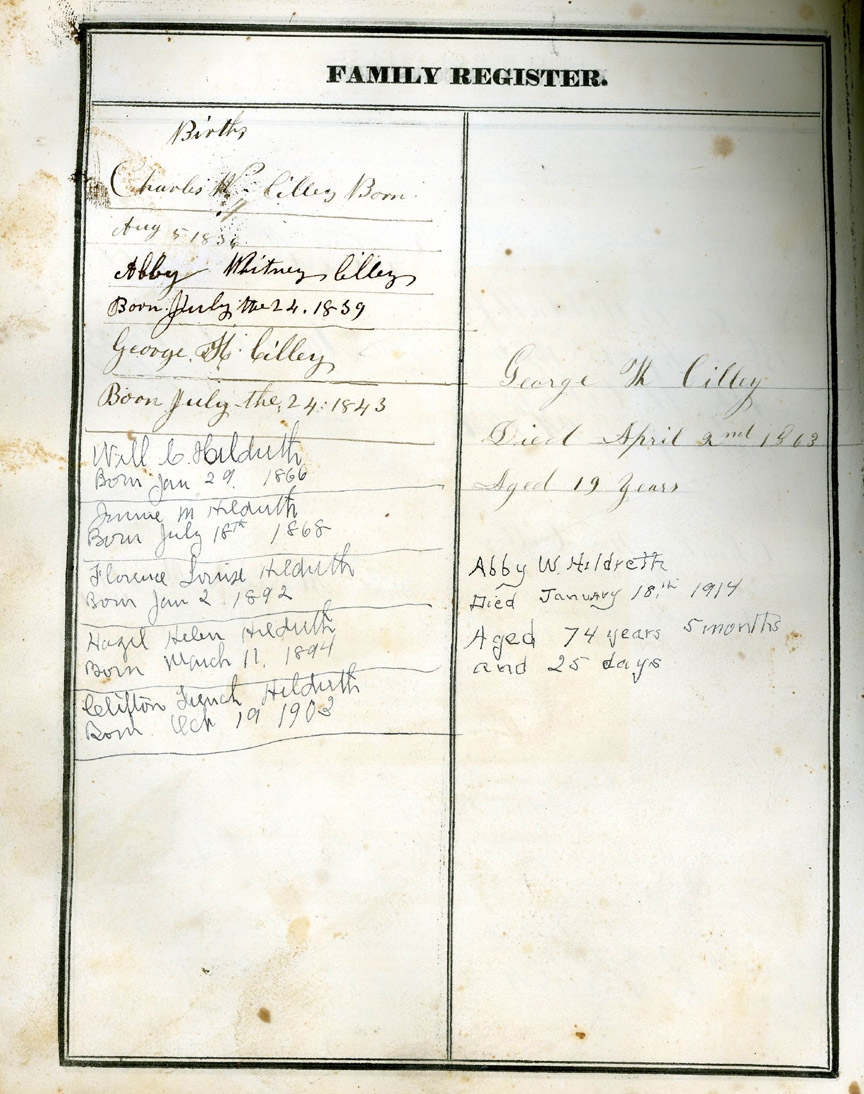 FAMILY REGISTER.
Births
Charles W. Cilley Born
Aug 5 1836
Abby Whitney Cilley
Born July the 24. 1839
George H. Cilley
Born July the 24: 1843
Will C. Hildreth
Born Jan 29. 1866
Jennie M Hildreth
Born July 18th 1868
Florence Louise Hildreth
Born Jan 2. 1892
Hazel Helen Hildreth
Born March 11, 1894
Clifton French Hildreth
Born Oct 19 1903
George H Cilley
Died April 2nd 1863
Aged 19 Years
Abby W. Hildreth
Died January 18.th 1914
Aged 74 years 5 months
and 25 days